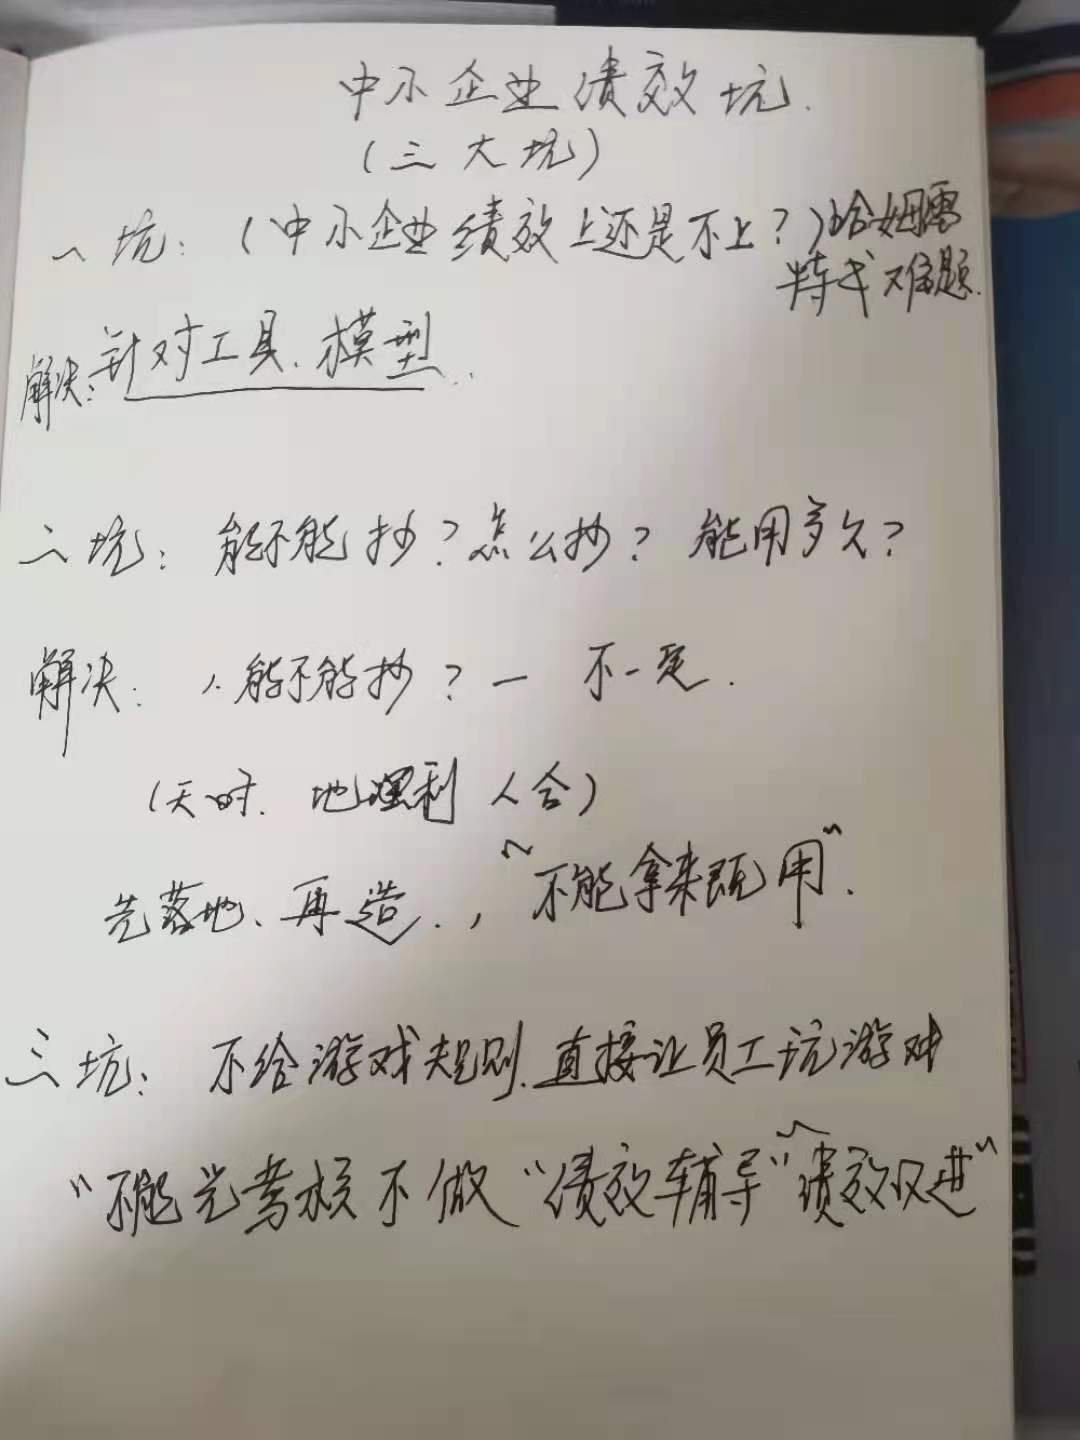 中小企业绩效坑.
(三大坑)
一坑: (中小企业绩效上还是不上?)哈姆雷
特式难题.
解决:针对工具、模型..
二坑: 能不能抄?怎么抄? 能用多久?
解决: 1.能不能抄?一 不一定.
(天时. 地理利 人合)
先落地、再造.,"不能拿来既用".
三坑: 不给游戏规则.直接让员工玩游戏
"不能光考核不做"绩效辅导""绩效改进"